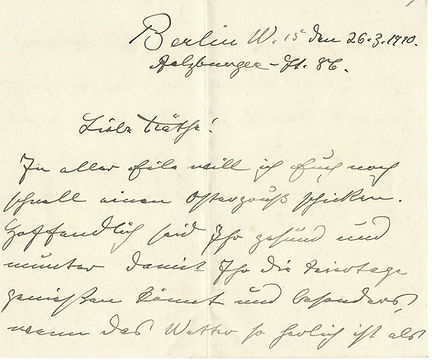 Berlin W. 15 den 26.3.1910.
Salzburger-St. 8b.
Liebe Käthe!
In aller Eile will ich Euch noch
schnell einen Ostergruß schicken.
Hoffendlich seid Ihr gesund und
munter damit Ihr die Feiertage
genießen könnt und besonders,
wenn das Wetter so herlich ist als